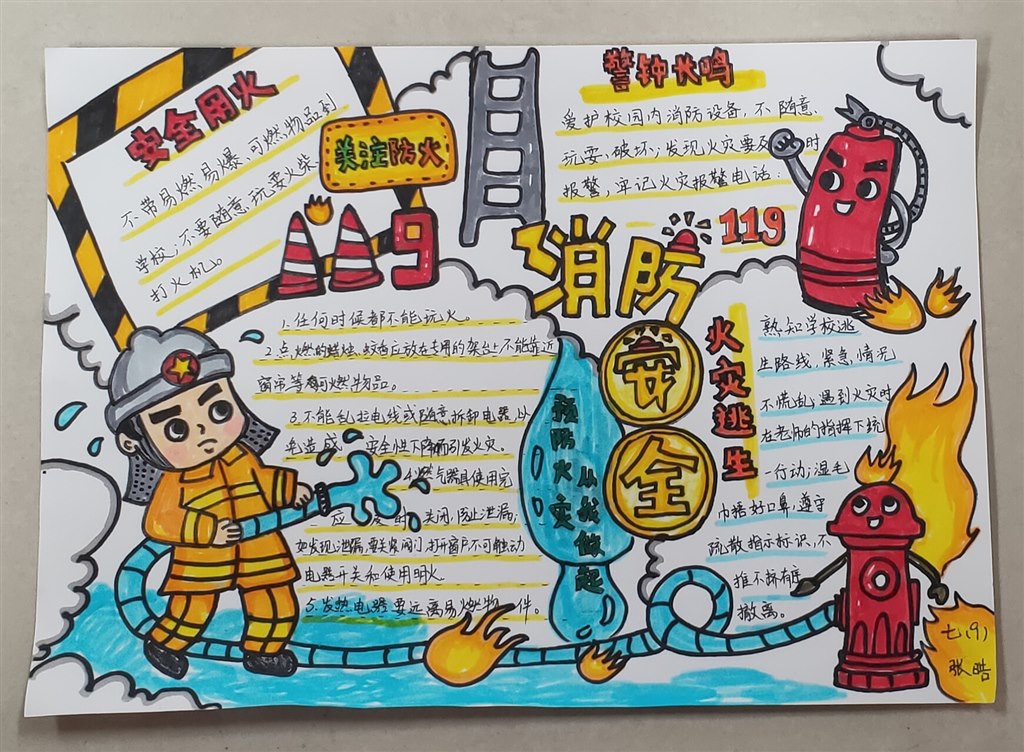 安全用火
不带易燃易爆、可燃物品到
学校;不要随意玩耍火柴、
打火机。
关注防火
119
警钟长鸣
爱护校园内消防设备,不随意
玩耍、破坏;发现火灾要及时
报警,牢记火灾报警电话:
119
消防
安全
1.任何时候都不能玩火。
2.点燃的蜡烛、蚊香应放在专用的架台上不能靠近
窗帘等可燃物品。
3.不能乱拉电线或随意拆卸电器,以
免造成 安全性下降而引发火灾。
4.燃气器具使用完
应 及时 关闭,防止泄漏;
如发现泄漏,要关紧阀门,打开窗户不可触动
电器开关和使用明火。
5.发热电器要远离易燃物 件。
预防火灾
从我做起
火灾逃生
熟知学校逃
生路线,紧急情况
不慌乱;遇到火灾时
在老师的指挥下统
一行动;湿毛
巾捂好口鼻,遵守
疏散指示标识,不
推不挤有序
撤离。
七(9)
张晧